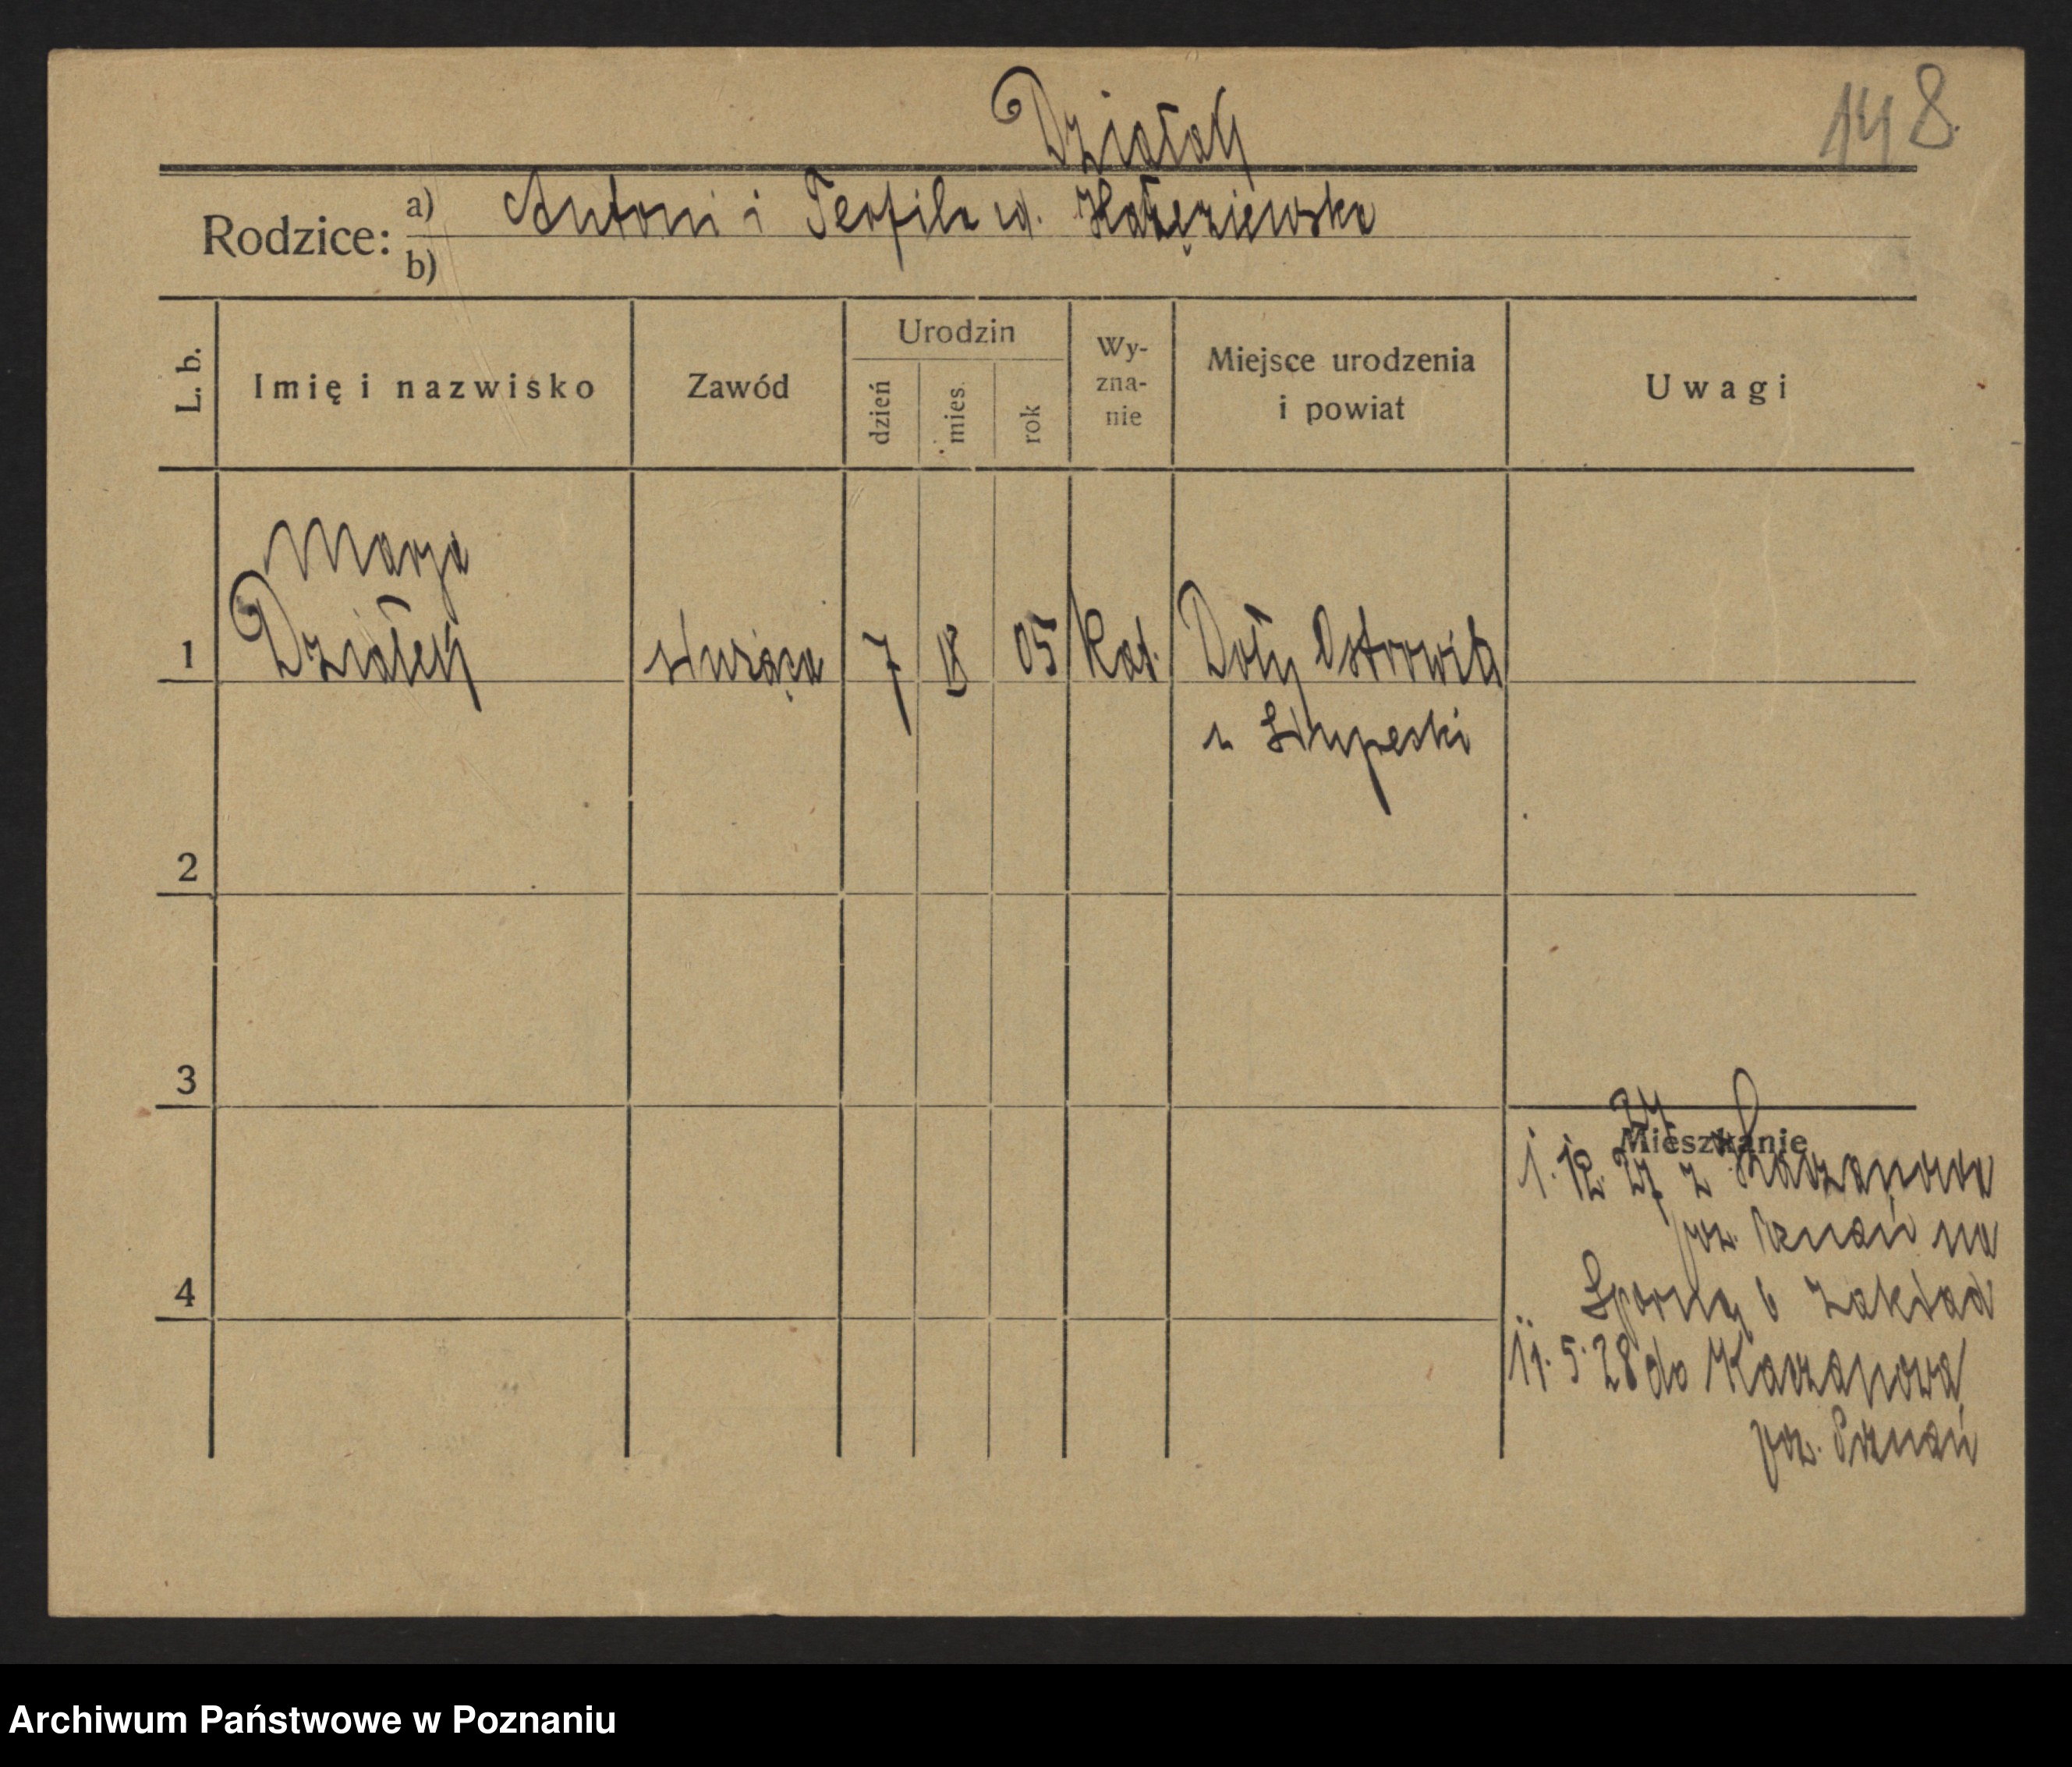 Działak
148.
Rodzice: a) Antoni i Teofila
b)
L. b.
Imię i nazwisko
Zawód
Urodzin
dzień
mies.
rok
Wy-
zna-
nie
Miejsce urodzenia
i powiat
Uwagi
Marja
1 Działek służąca 7 05 Kat. Doły
2
3
4
Mieszkanie
1. 12. 27 z Kaczanowa
poz. Poznań na
Sporną 6 zakład
11. 5. 28 do Kaczanowa
poz. Poznań
Archiwum Państwowe w Poznaniu